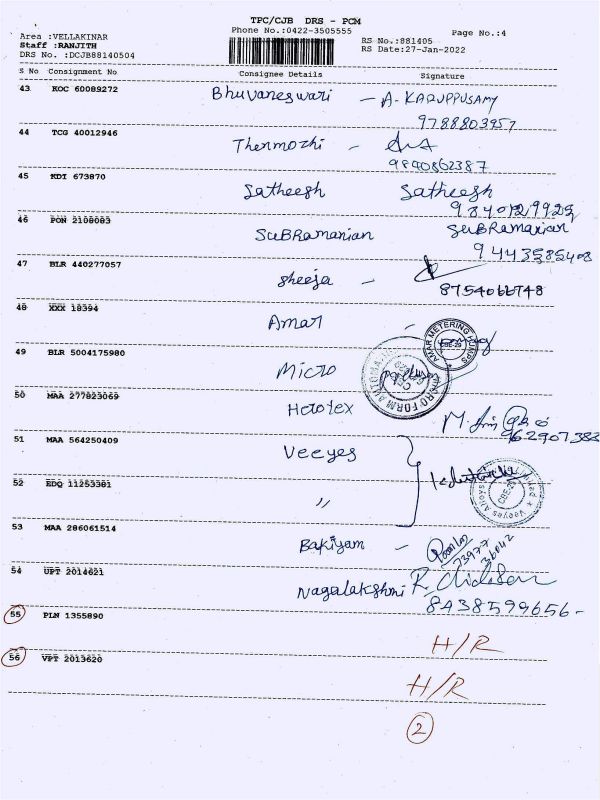 TPC/CJB DRS - PCM
Area :VELLAKINAR Phone No.:0422-3505555 RS No.:881405 Page No.:4
Staff :RANJITH RS Date:27-Jan-2022
DRS No. :DCJB88140504
S No Consignment No Consignee Details Signature
43 KOC 60089272 Bhuvaneswari - A. KARUPPUSAMY
9788803957
44 TCG 40012946 Thenmozhi -
9890862387
45 KDI 673870 Satheesh Satheesh
46 PON 2108083 SuBRamanian SuBRamanian
9443585408
47 BLR 440277057 Sheeja -
8754066748
48 XXX 18394 Amar -
AMAR METERING PUMPS
CBE-29
49 BLR 5004175980 Micro
50 MAA 277823069 Herotex
962907388
51 MAA 564250409 Veeyes
52 EDQ 11253381 "
Veeyes Alloys
CBE-29
53 MAA 286061514 Bakiyam -
73977
36042
54 UPT 2014621 Nagalakshmi
8438599656-
55 PLN 1355890 H/R
56 VPT 2013620 H/R
2